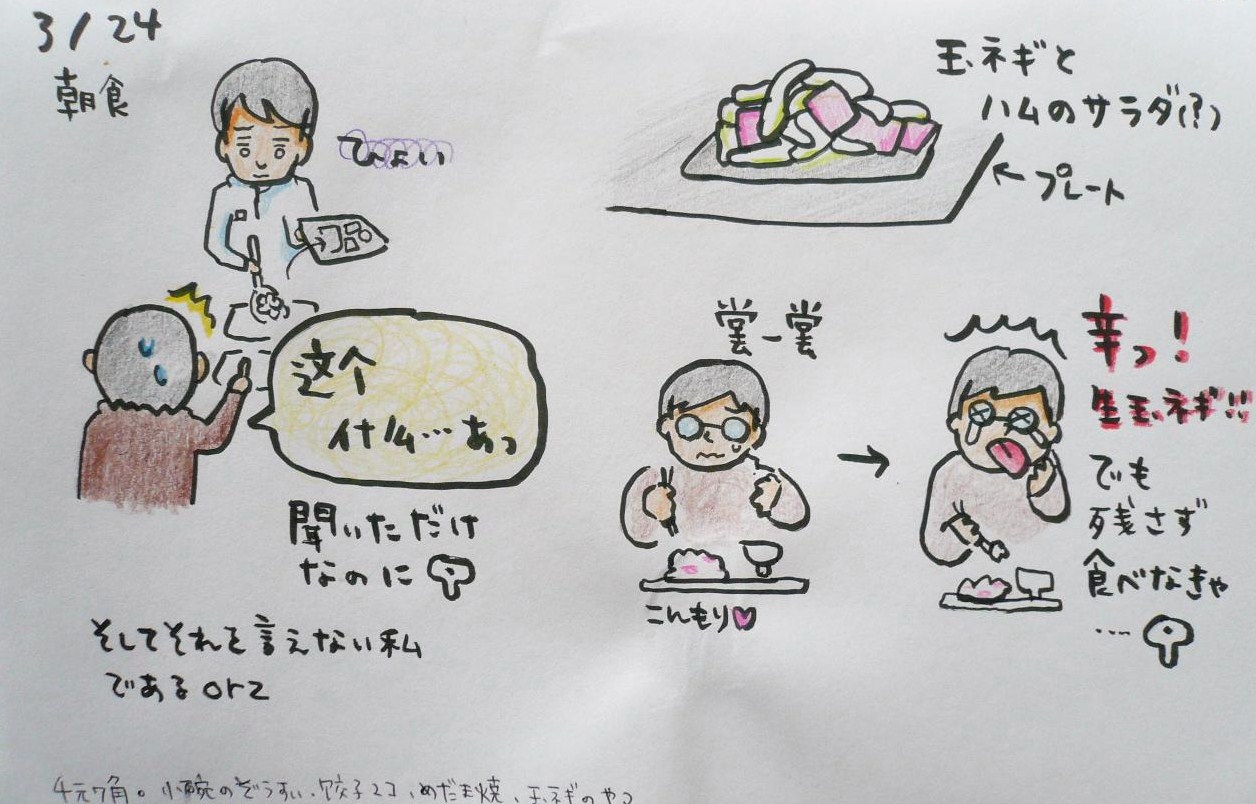 3/24
朝食
ひょい
这个
什么…あっ
聞いただけ
なのに
そしてそれを言えない私
であるorz
玉ネギと
ハムのサラダ(?)
←プレート
尝一尝
こんもり♥
→
辛っ!
生玉ネギ!!
でも
残さず
食べなきゃ
…
4元7角。小碗のぞうすい、餃子2コ、めだま焼、玉ネギのやつ